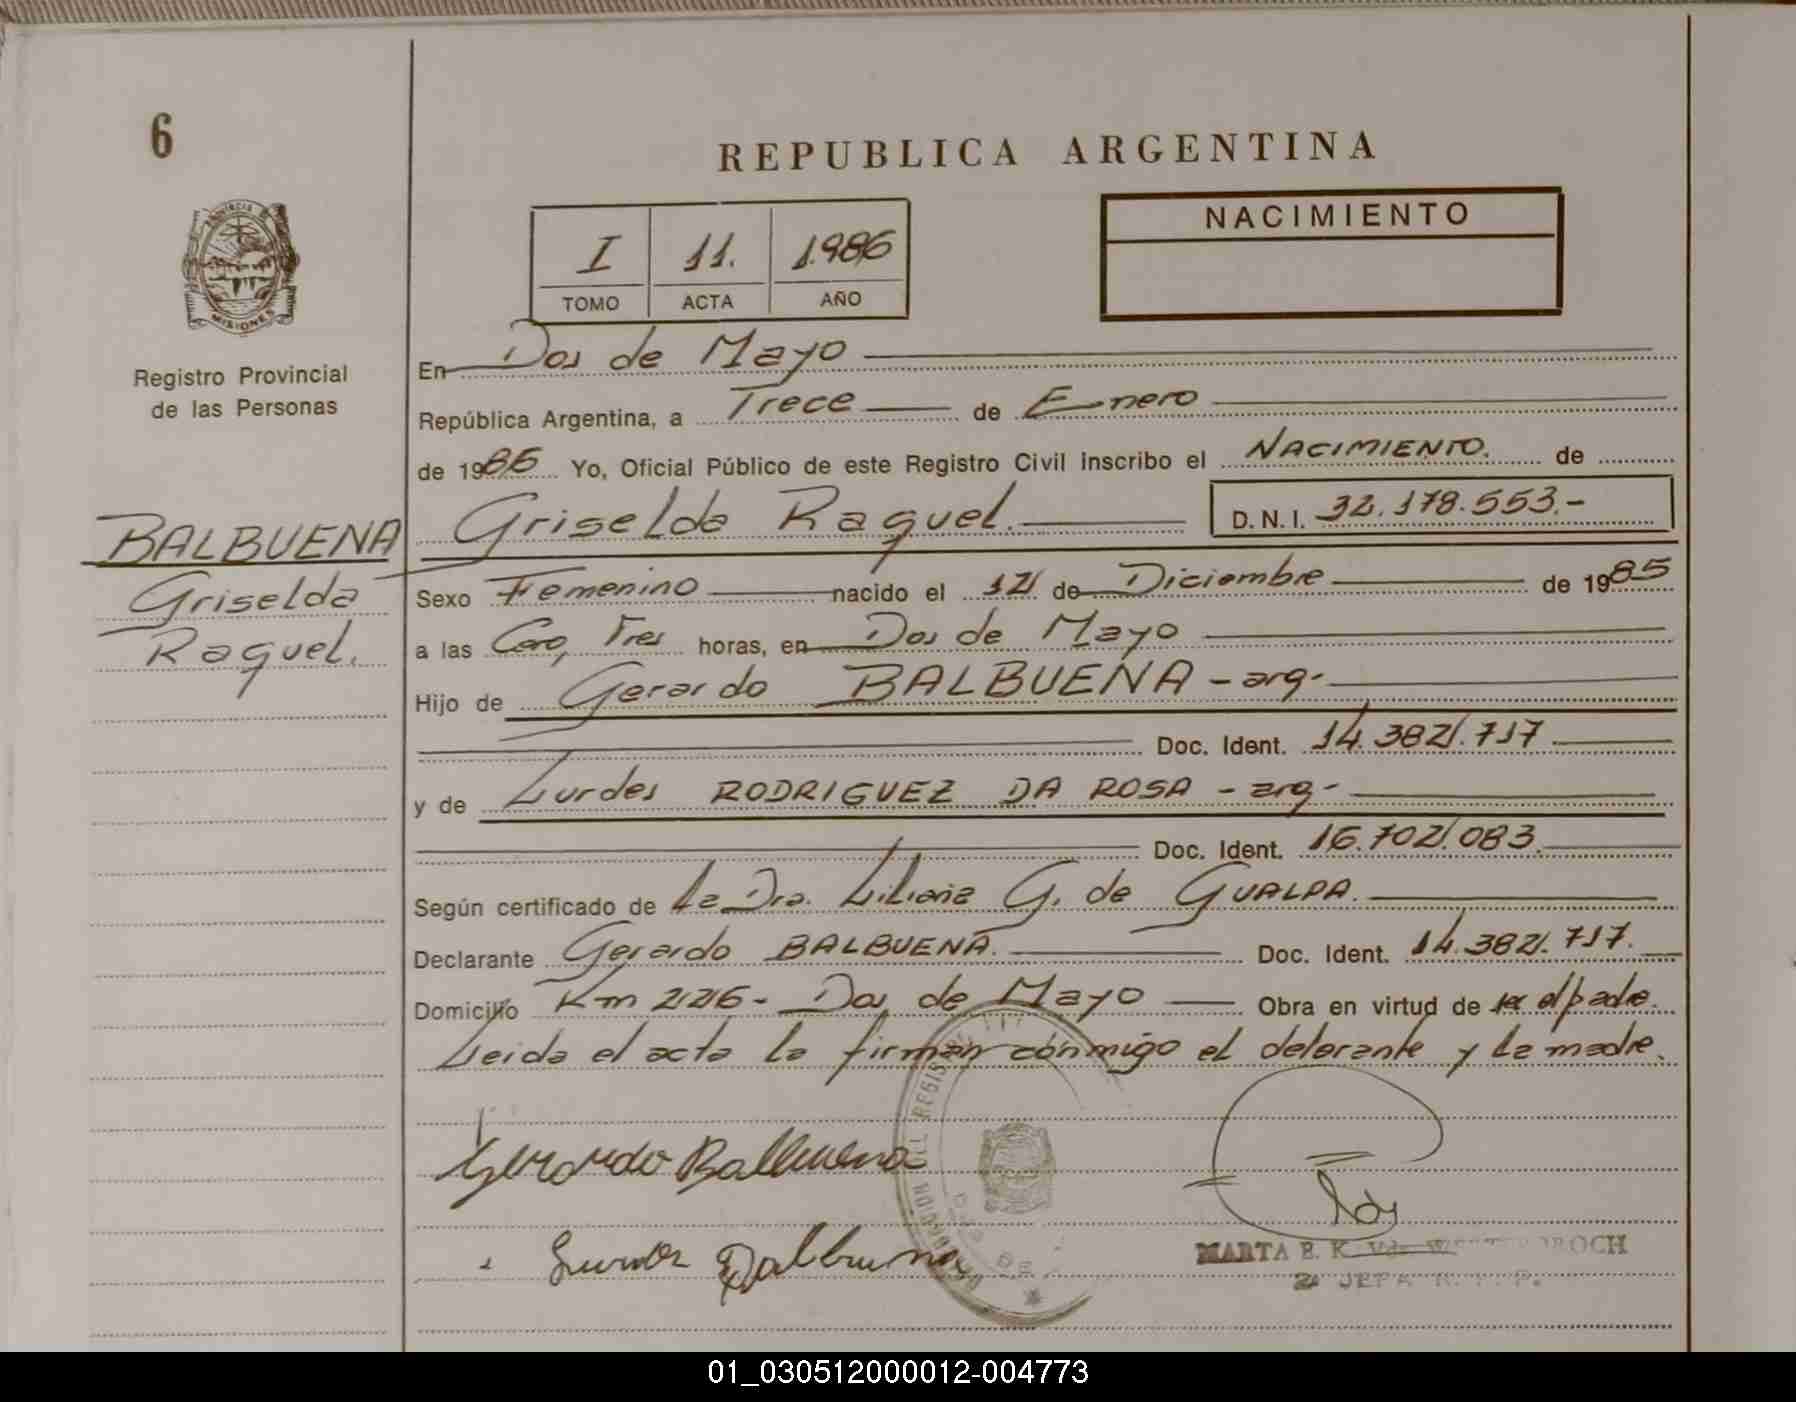 6
REPUBLICA ARGENTINA
NACIMIENTO
I 11. 1.986
TOMO ACTA AÑO
PROVINCIA DE
MISIONES
Registro Provincial
de las Personas
En Dos de Mayo
República Argentina, a Trece de Enero
de 1986 Yo, Oficial Público de este Registro Civil inscribo el NACIMIENTO. de
Griselda Raquel. D.N.I. 32.178.553.-
BALBUENA
Griselda
Raquel.
Sexo Femenino nacido el 12 de Diciembre de 1985
a las Cero, Tres horas, en Dos de Mayo
Hijo de Gerardo BALBUENA - arg.-
Doc. Ident. 14.382.717
y de Lurdes RODRIGUEZ DA ROSA - arg-
Doc. Ident. 16.702.083.
Según certificado de La Dra. Liliana G. de GUALPA.
Declarante Gerardo BALBUENA. Doc. Ident. 14.382.717.
Domicilio Km 226- Dos de Mayo Obra en virtud de ser el padre.
Leida el acta la firman conmigo el delarante y la madre.
Gerardo Balbuena
Balbuena
MARTA E. K. Vda.
JEFA
01_030512000012-004773